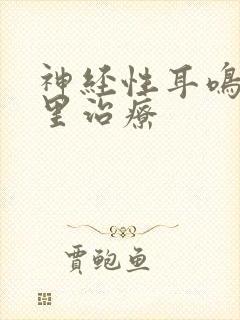 神経性耳鳴
里治療
賈鲍鱼